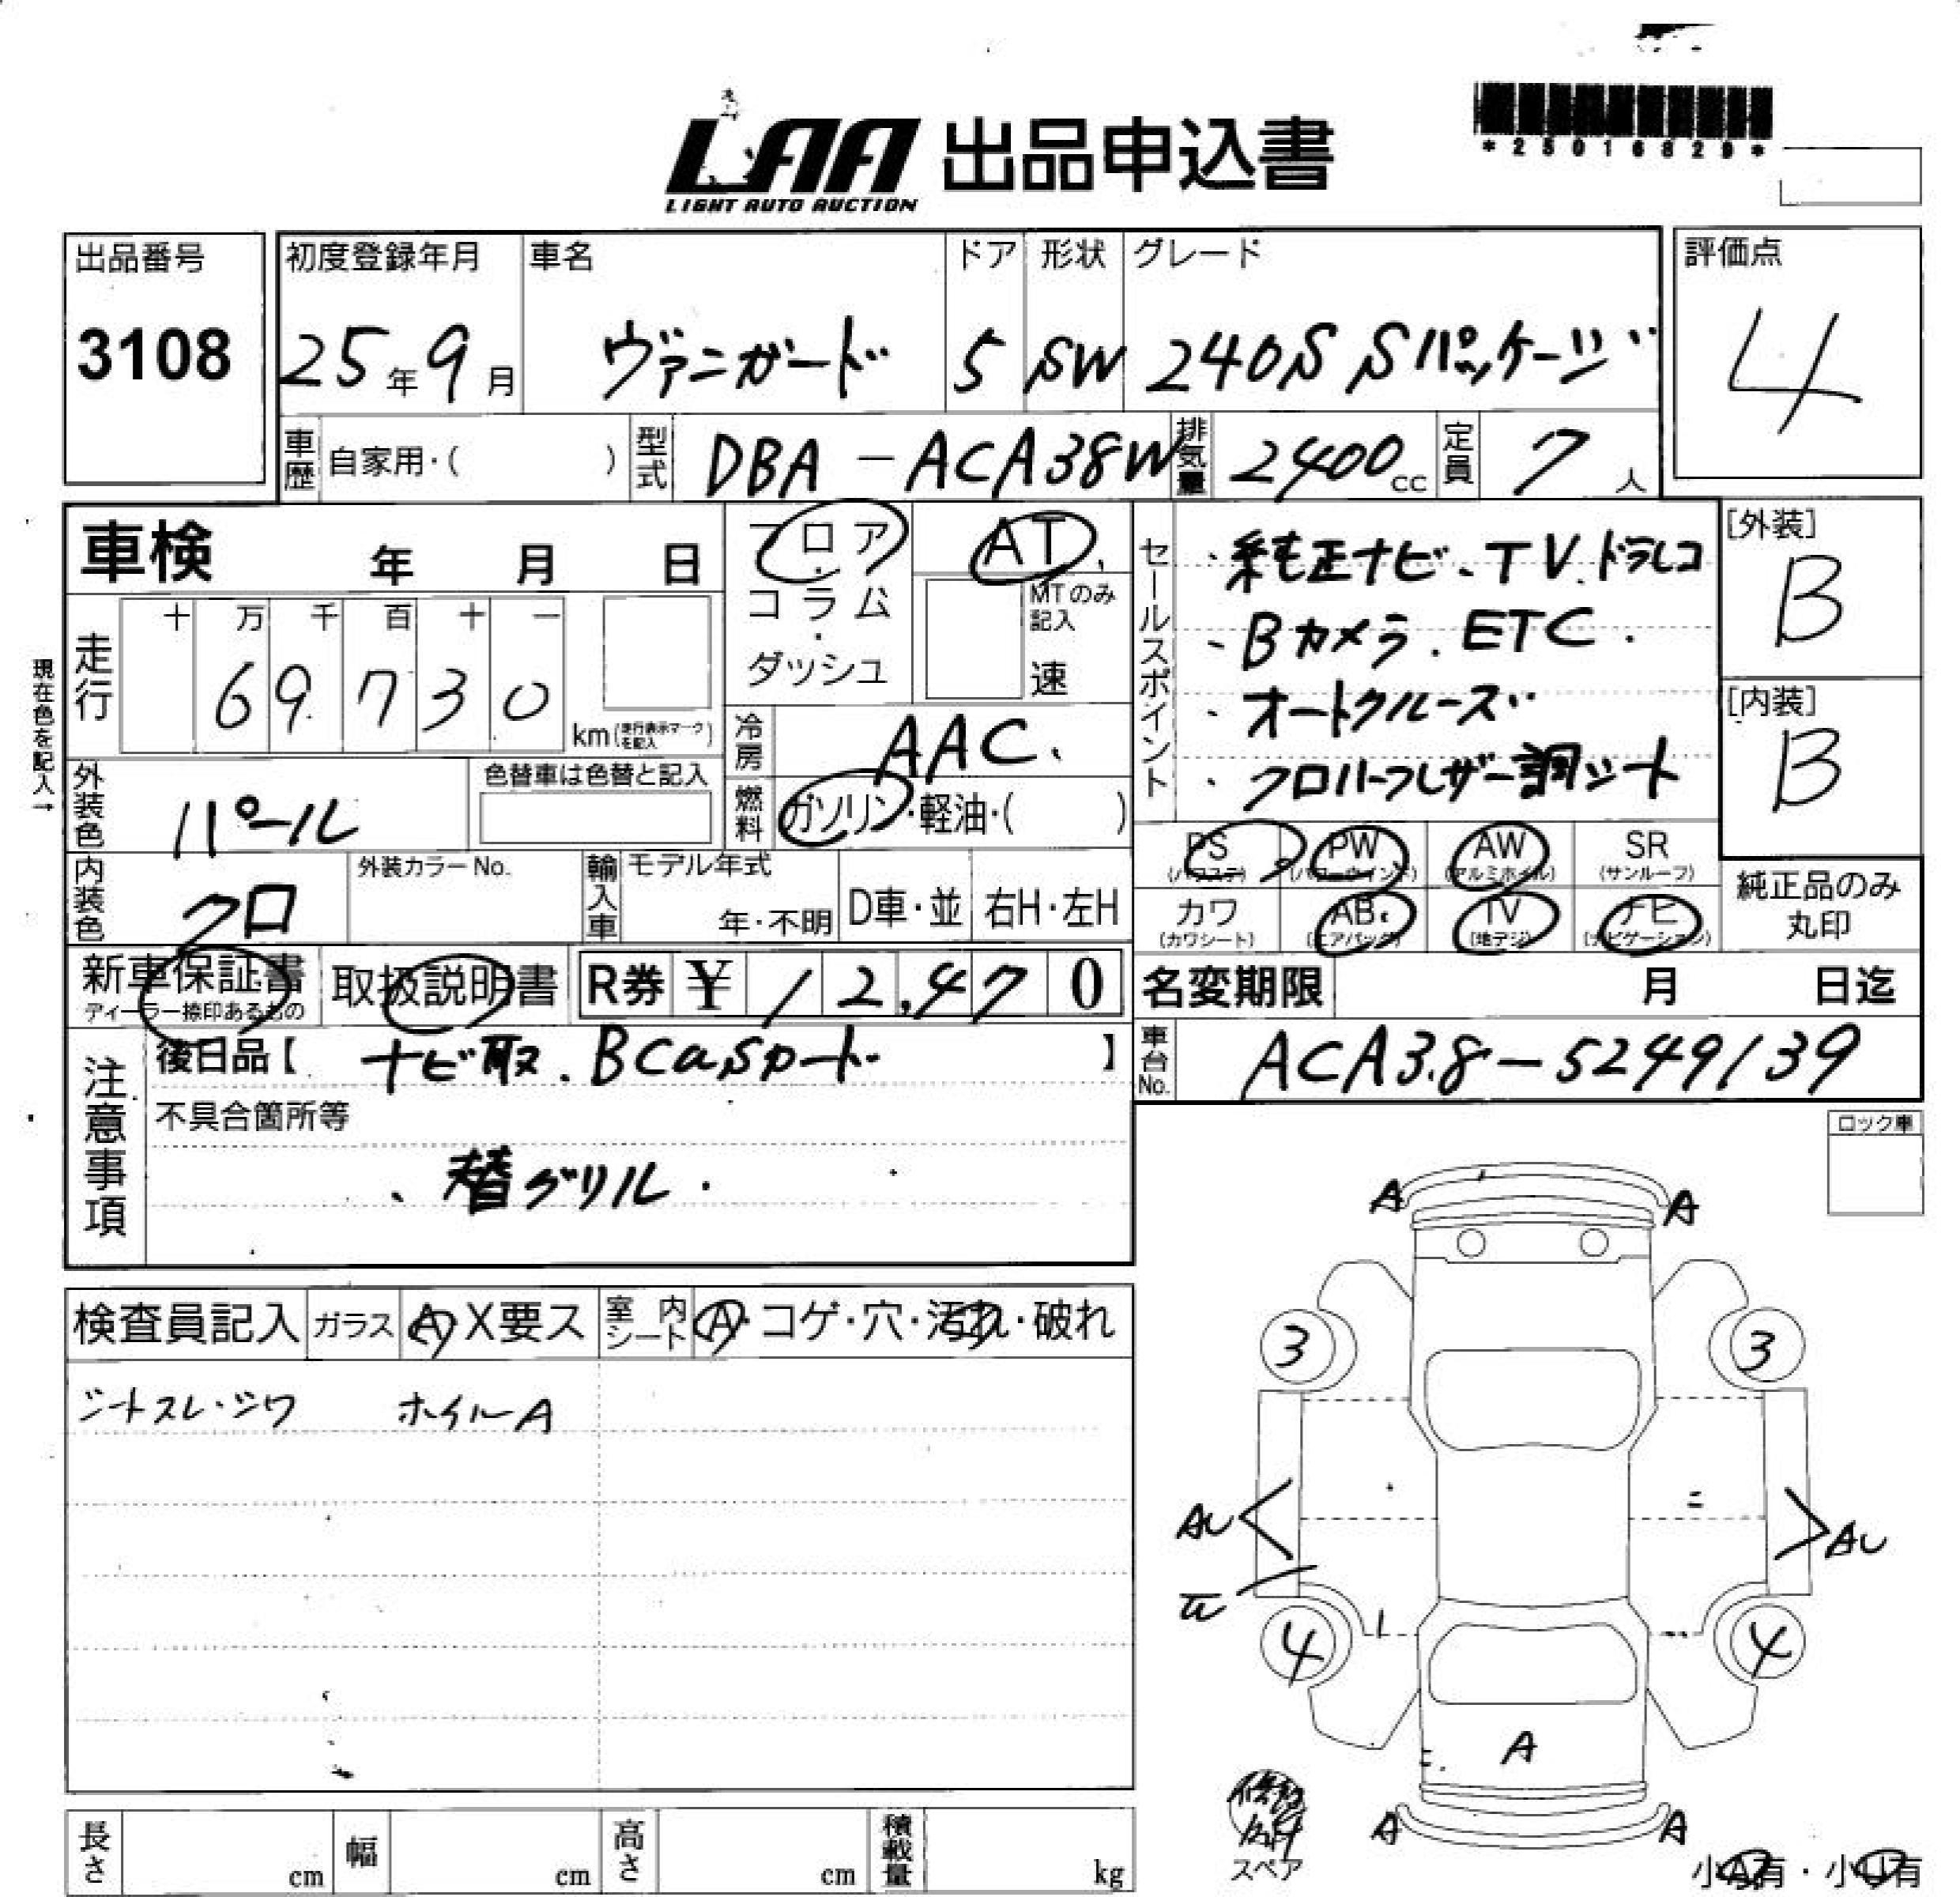 LAA 出品申込書
LIGHT AUTO AUCTION
*25016829*
出品番号
3108
初度登録年月
25年9月
車名
ヴァンガード
ドア
5
形状
SW
グレード
240S Sパッケージ
評価点
4
車歴 自家用・( )
型式 DBA-ACA38W
排気量 2400cc
定員 7人
車検 年 月 日
フロア・コラム・ダッシュ
AT
MTのみ記入
速
セールスポイント
・純正ナビ、TV、ドラレコ
・Bカメラ.ETC.
・オートクルーズ
・クロハーフレザー調シート
[外装]
B
[内装]
B
現在色を記入→
走行
十 万 千 百 十 一
69730
km(走行表示マークを記入)
冷房 AAC.
外装色 パール
色替車は色替と記入
燃料 ガソリン・軽油・( )
内装色 クロ
外装カラーNo.
輸入車
モデル年式
年・不明
D車・並
右H・左H
PS (パワステ)
PW (パワーウインド)
AW (アルミホイル)
SR (サンルーフ)
カワ (カワシート)
AB (エアバッグ)
TV (地デジ)
ナビ (ナビゲーション)
純正品のみ丸印
新車保証書
ディーラー捺印あるもの
取扱説明書
R券 ¥12,470
名変期限 月 日迄
車台No. ACA38-5249139
注意事項
後日品【 ナビ取.BCasカード 】
不具合箇所等
、替グリル.
ロック車
検査員記入
ガラス A X要ス
室内シート A・コゲ・穴・汚れ・破れ
シートスレ・シワ ホイルA
A A
3 3
AU AU
4 4
A
A A
スペア
小A有・小U有
長さ cm
幅 cm
高さ cm
積載量 kg